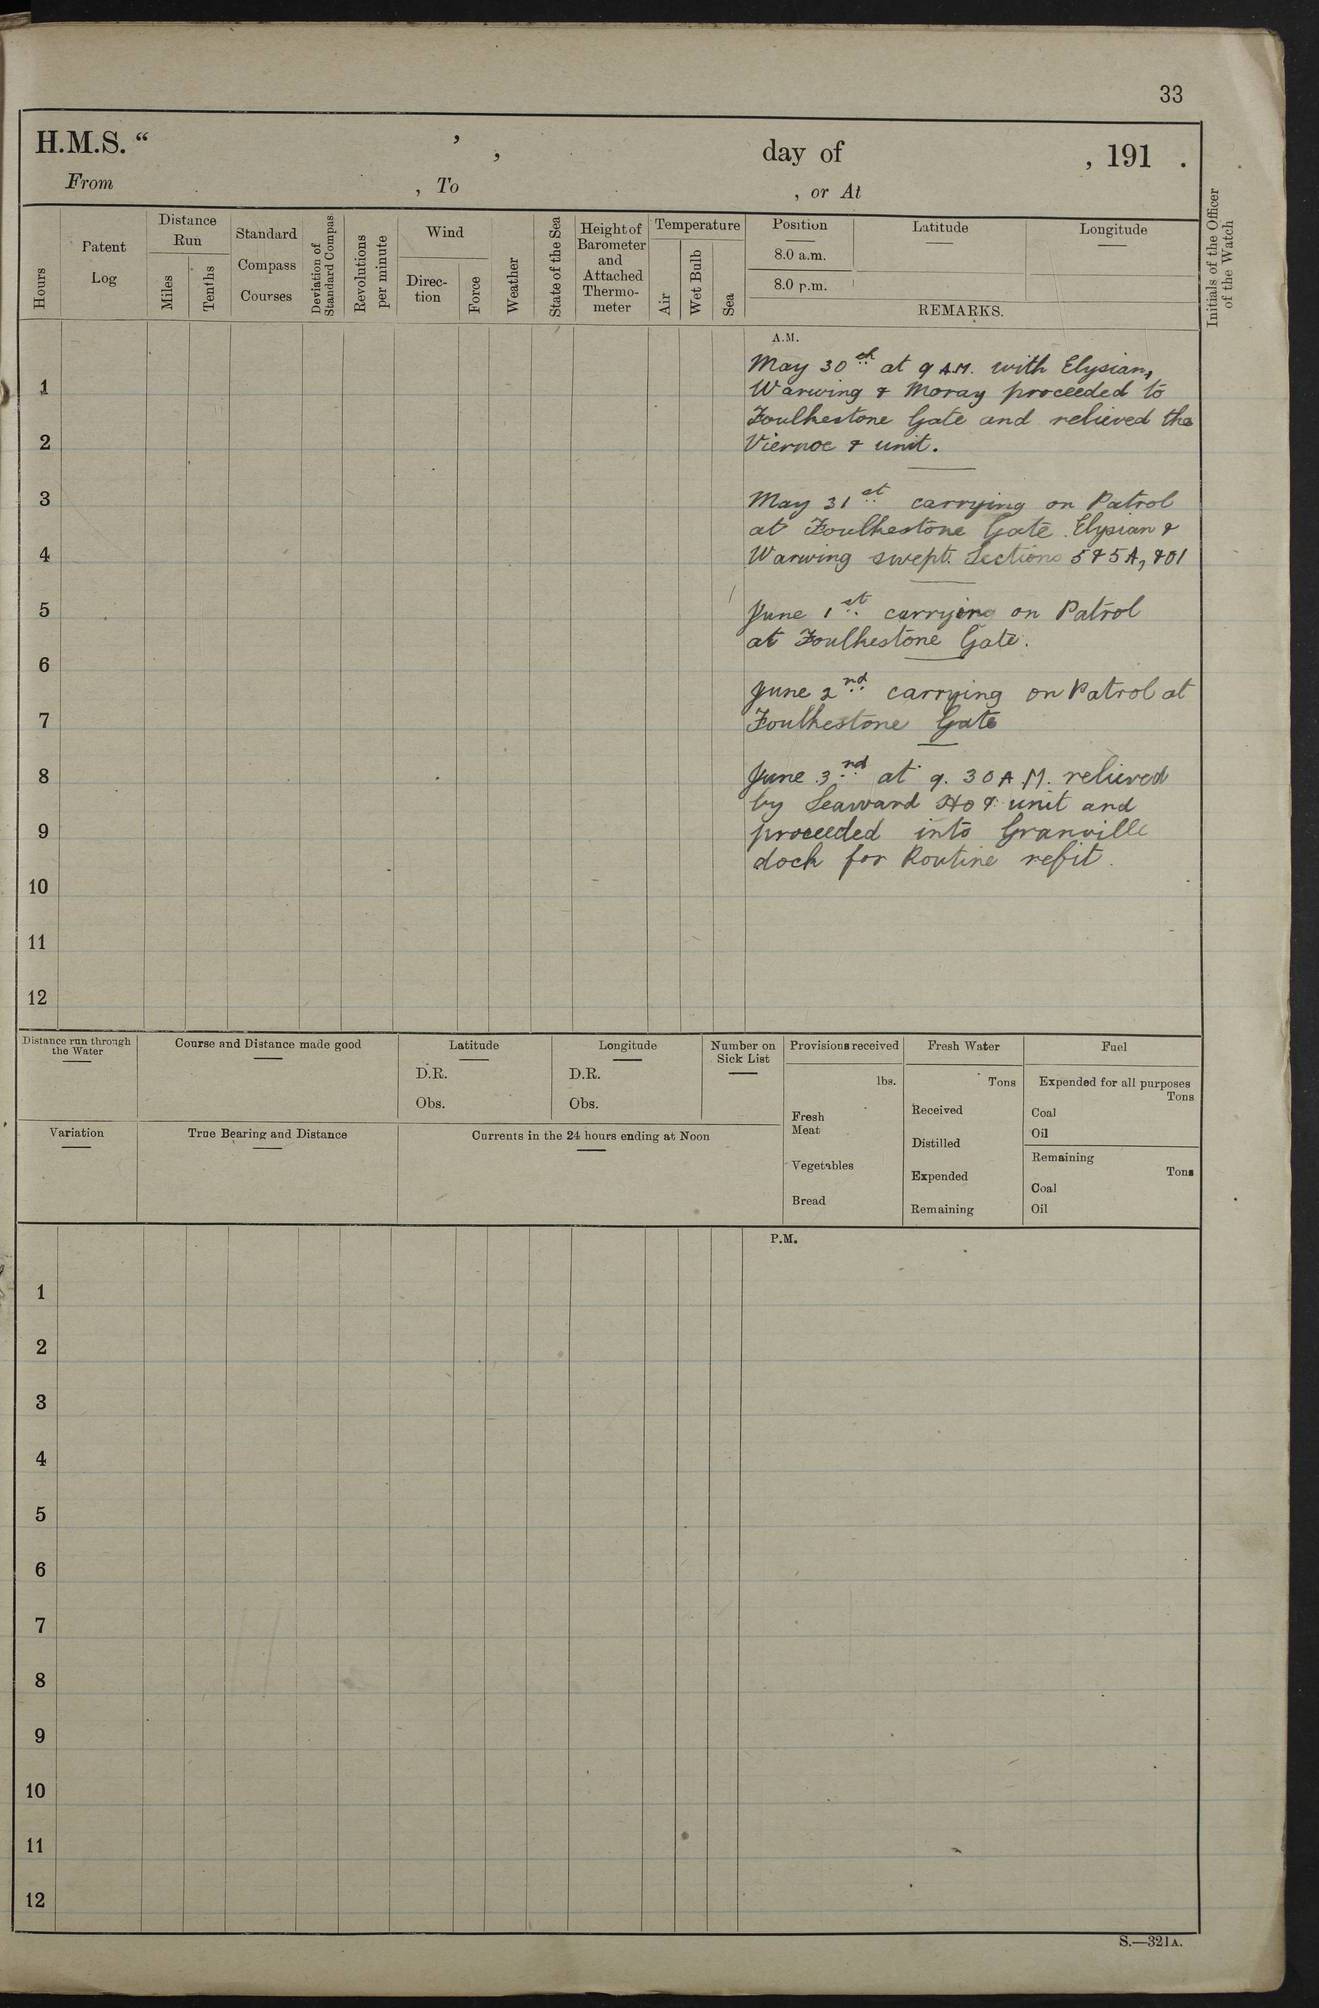 33
H.M.S. “ ’ , day of , 191 .
From , To , or At
Hours
Patent Log
Distance Run
Miles
Tenths
Standard Compass Courses
Deviation of Standard Compass
Revolutions per minute
Wind
Direc-tion
Force
Weather
State of the Sea
Height of Barometer and Attached Thermo-meter
Temperature
Air
Wet Bulb
Sea
Position
8.0 a.m.
8.0 p.m.
Latitude
Longitude
REMARKS.
Initials of the Officer of the Watch
A.M.
May 30th at 9 A.M. with Elysian,
Warwing & Moray proceeded to
Foulkestone Gate and relieved the
Viernoe & unit.
May 31st carrying on Patrol
at Foulkestone Gate. Elysian &
Warwing swept Sections 5 & 5A, & 01
June 1st carrying on Patrol
at Foulkestone Gate.
June 2nd carrying on Patrol at
Foulkestone Gate
June 3nd at 9.30 A.M. relieved
by Seaward Ho & unit and
proceeded into Granville
dock for Routine refit.
1
2
3
4
5
6
7
8
9
10
11
12
Distance run through the Water
Course and Distance made good
Latitude
D.R.
Obs.
Longitude
D.R.
Obs.
Number on Sick List
Provisions received
lbs.
Fresh Meat
Vegetables
Bread
Fresh Water
Tons
Received
Distilled
Expended
Remaining
Fuel
Expended for all purposes
Tons
Coal
Oil
Remaining
Tons
Coal
Oil
Variation
True Bearing and Distance
Currents in the 24 hours ending at Noon
P.M.
1
2
3
4
5
6
7
8
9
10
11
12
S.—321A.